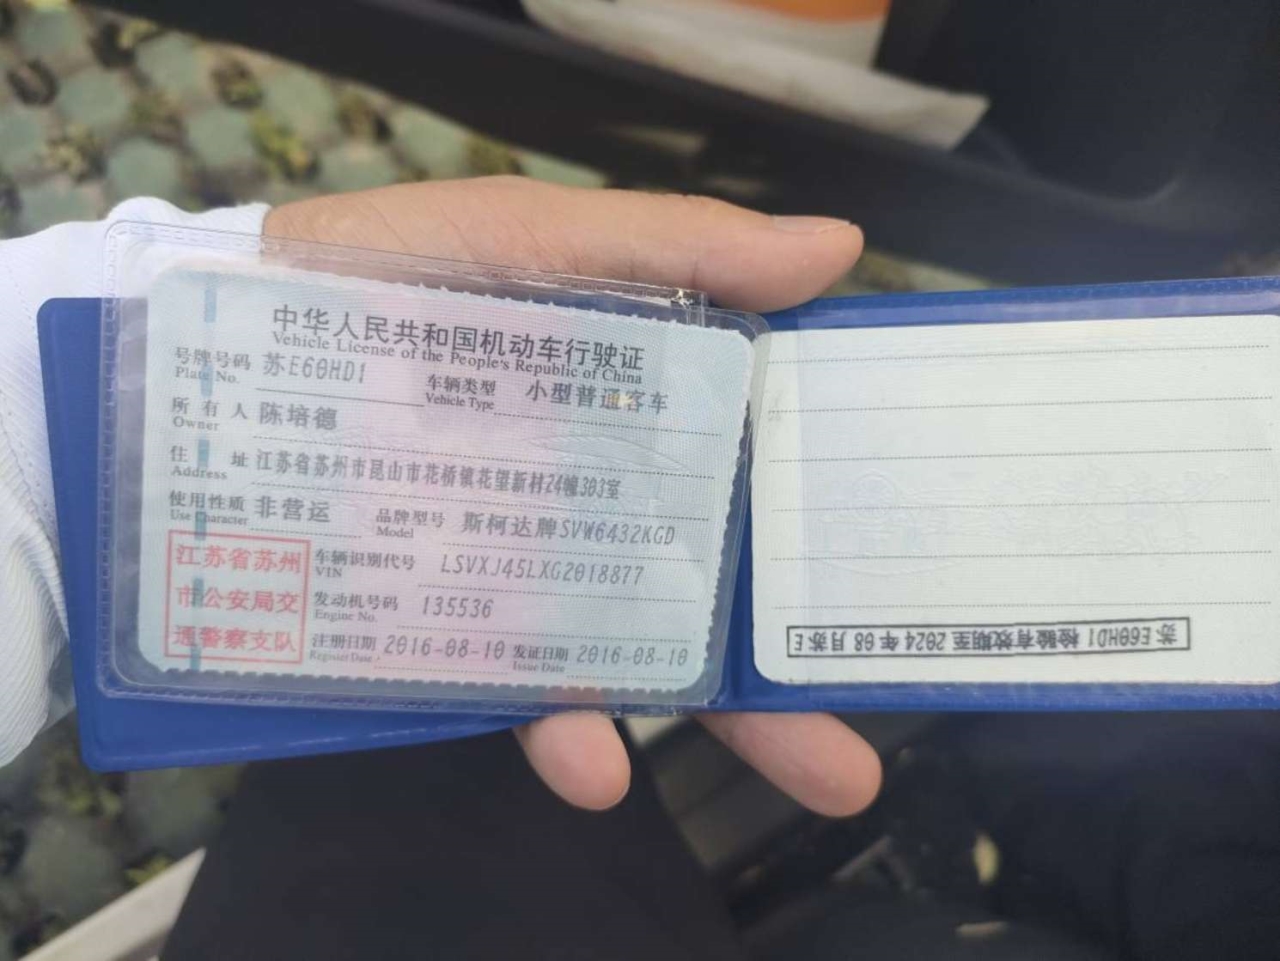 中华人民共和国机动车行驶证
Vehicle License of the People's Republic of China
号牌号码 苏E60HD1 车辆类型 小型普通客车
Plate No. Vehicle Type
所有人 陈培德
Owner
住址 江苏省苏州市昆山市花桥镇花望新村24幢303室
Address
使用性质 非营运 品牌型号 斯柯达牌SVW6432KGD
Use Character Model
江苏省苏州
市公安局交
通警察支队
车辆识别代号 LSVXJ45LXG2018877
VIN
发动机号码 135536
Engine No.
注册日期 2016-08-10 发证日期 2016-08-10
Register Date Issue Date
苏E60HD1 检验有效期至 2024年08月苏E